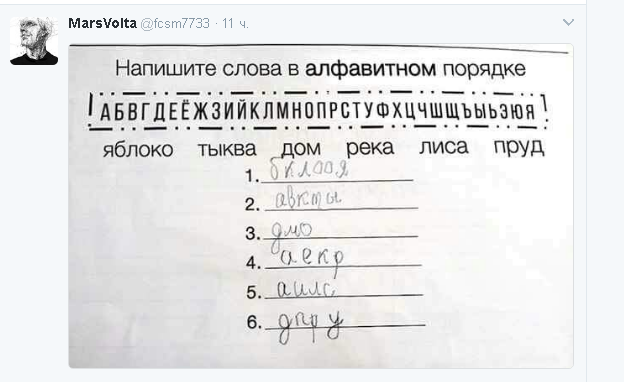 MarsVolta @fcsm7733 · 11 ч.
Напишите слова в алфавитном порядке
АБВГДЕЁЖЗИЙКЛМНОПРСТУФХЦЧШЩЪЫЬЭЮЯ
яблоко тыква дом река лиса пруд
1. бклооя
2. авкты
3. дмо
4. аекр
5. аилс
6. дпру